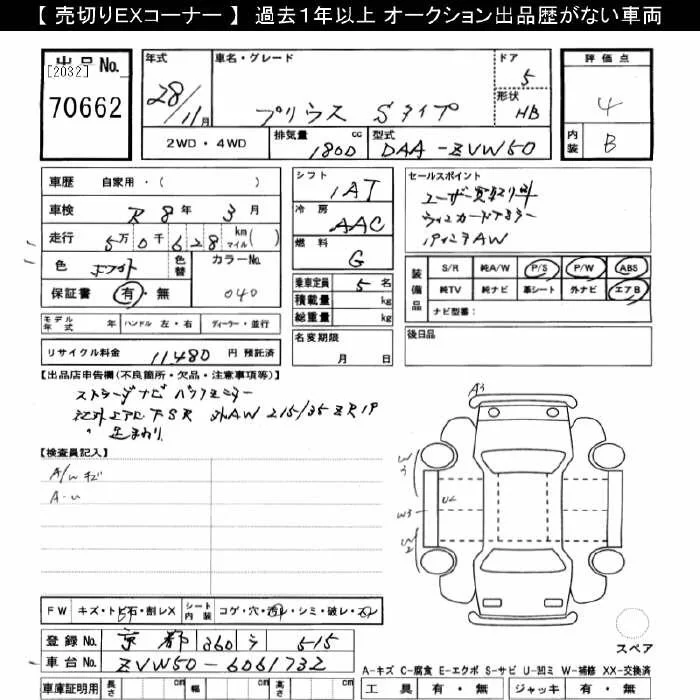 【 売切りEXコーナー 】 過去1年以上 オークション出品歴がない車両
出品No.
[2032]
70662
年式
28/11月
車名・グレード
プリウス Sタイプ
ドア
5
形状
HB
評価点
4
内装
B
2WD・4WD
排気量 1800 cc
型式 DAA-ZVW50
車歴 自家用・( )
車検 R 8年 3月
走行 5万0千628 km マイル( )
色 ホワイト
色替
カラーNo. 040
保証書 有・無
シフト
IAT
冷房
AAC
燃料
G
乗車定員 5名
積載量 kg
総重量 kg
名変期限
月 日
セールスポイント
ユーザー買取り車
19インチAW
装備品
S/R 純A/W P/S P/W ABS
純TV 純ナビ 革シート 外ナビ エアB
ナビ型番:
モデル年式 年 ハンドル 左・右 ディーラー・並行
リサイクル料金 11480 円 預託済
後日品
【出品店申告欄(不良箇所・欠品・注意事項等)】
ストラーダナビ バックモニター
外AW 215/35ZR19
【検査員記入】
A/Wキズ
A-U
A3
W3
U2
W3
W2
FW キズ・トビ石・割レX
シート内装 コゲ・穴・汚レ・シミ・破レ・スレ
登録No. 京都 360 ラ 515
車台No. ZVW50-6061732
車庫証明用 長さ cm 幅 cm 高さ cm
スペア
A-キズ C-腐食 E-エクボ S-サビ U-凹ミ W-補修 XX-交換済
工具 有・無 ジャッキ 有・無